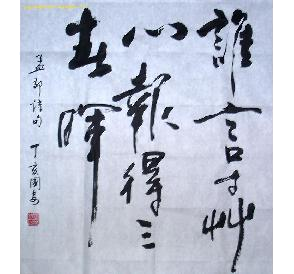 誰言寸艸
心報得三
春暉
孟郊詩句 丁亥國